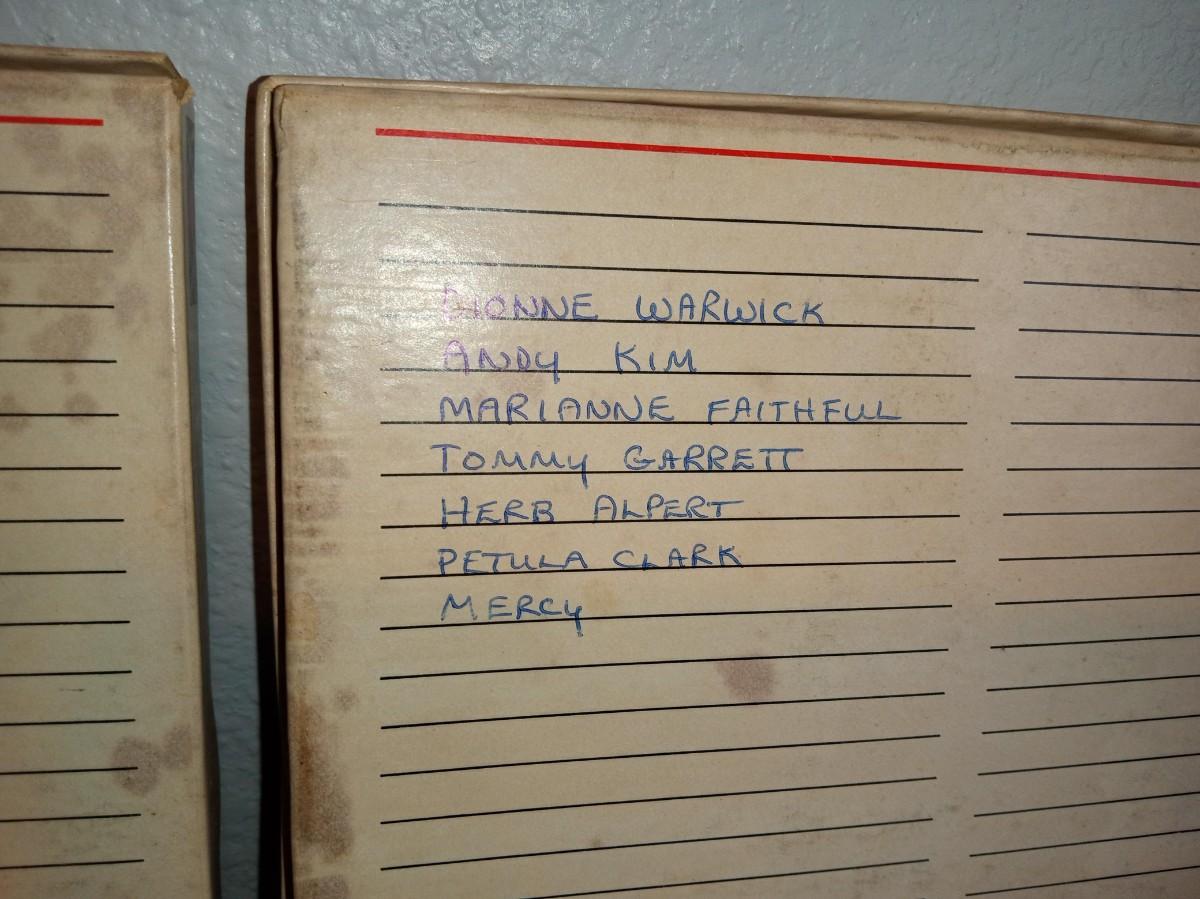 DIONNE WARWICK
ANDY KIM
MARIANNE FAITHFUL
TOMMY GARRETT
HERB ALPERT
PETULA CLARK
MERCY